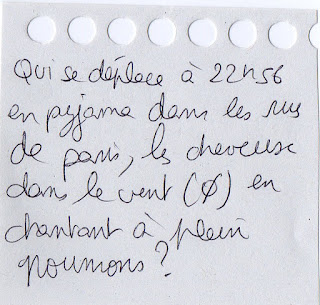 Qui se déplace à 22h56
en pyjama dans les rues
de paris, les cheveux
dans le vent (∅) en
chantant à plein
poumons ?